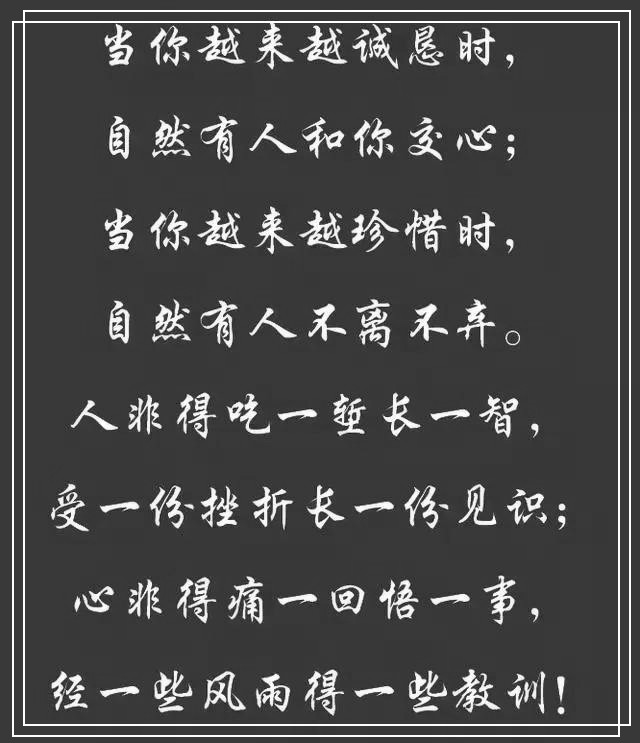 当你越来越诚恳时，
自然有人和你交心；
当你越来越珍惜时，
自然有人不离不弃。
人非得吃一堑长一智，
受一份挫折长一份见识；
心非得痛一回悟一事，
经一些风雨得一些教训！